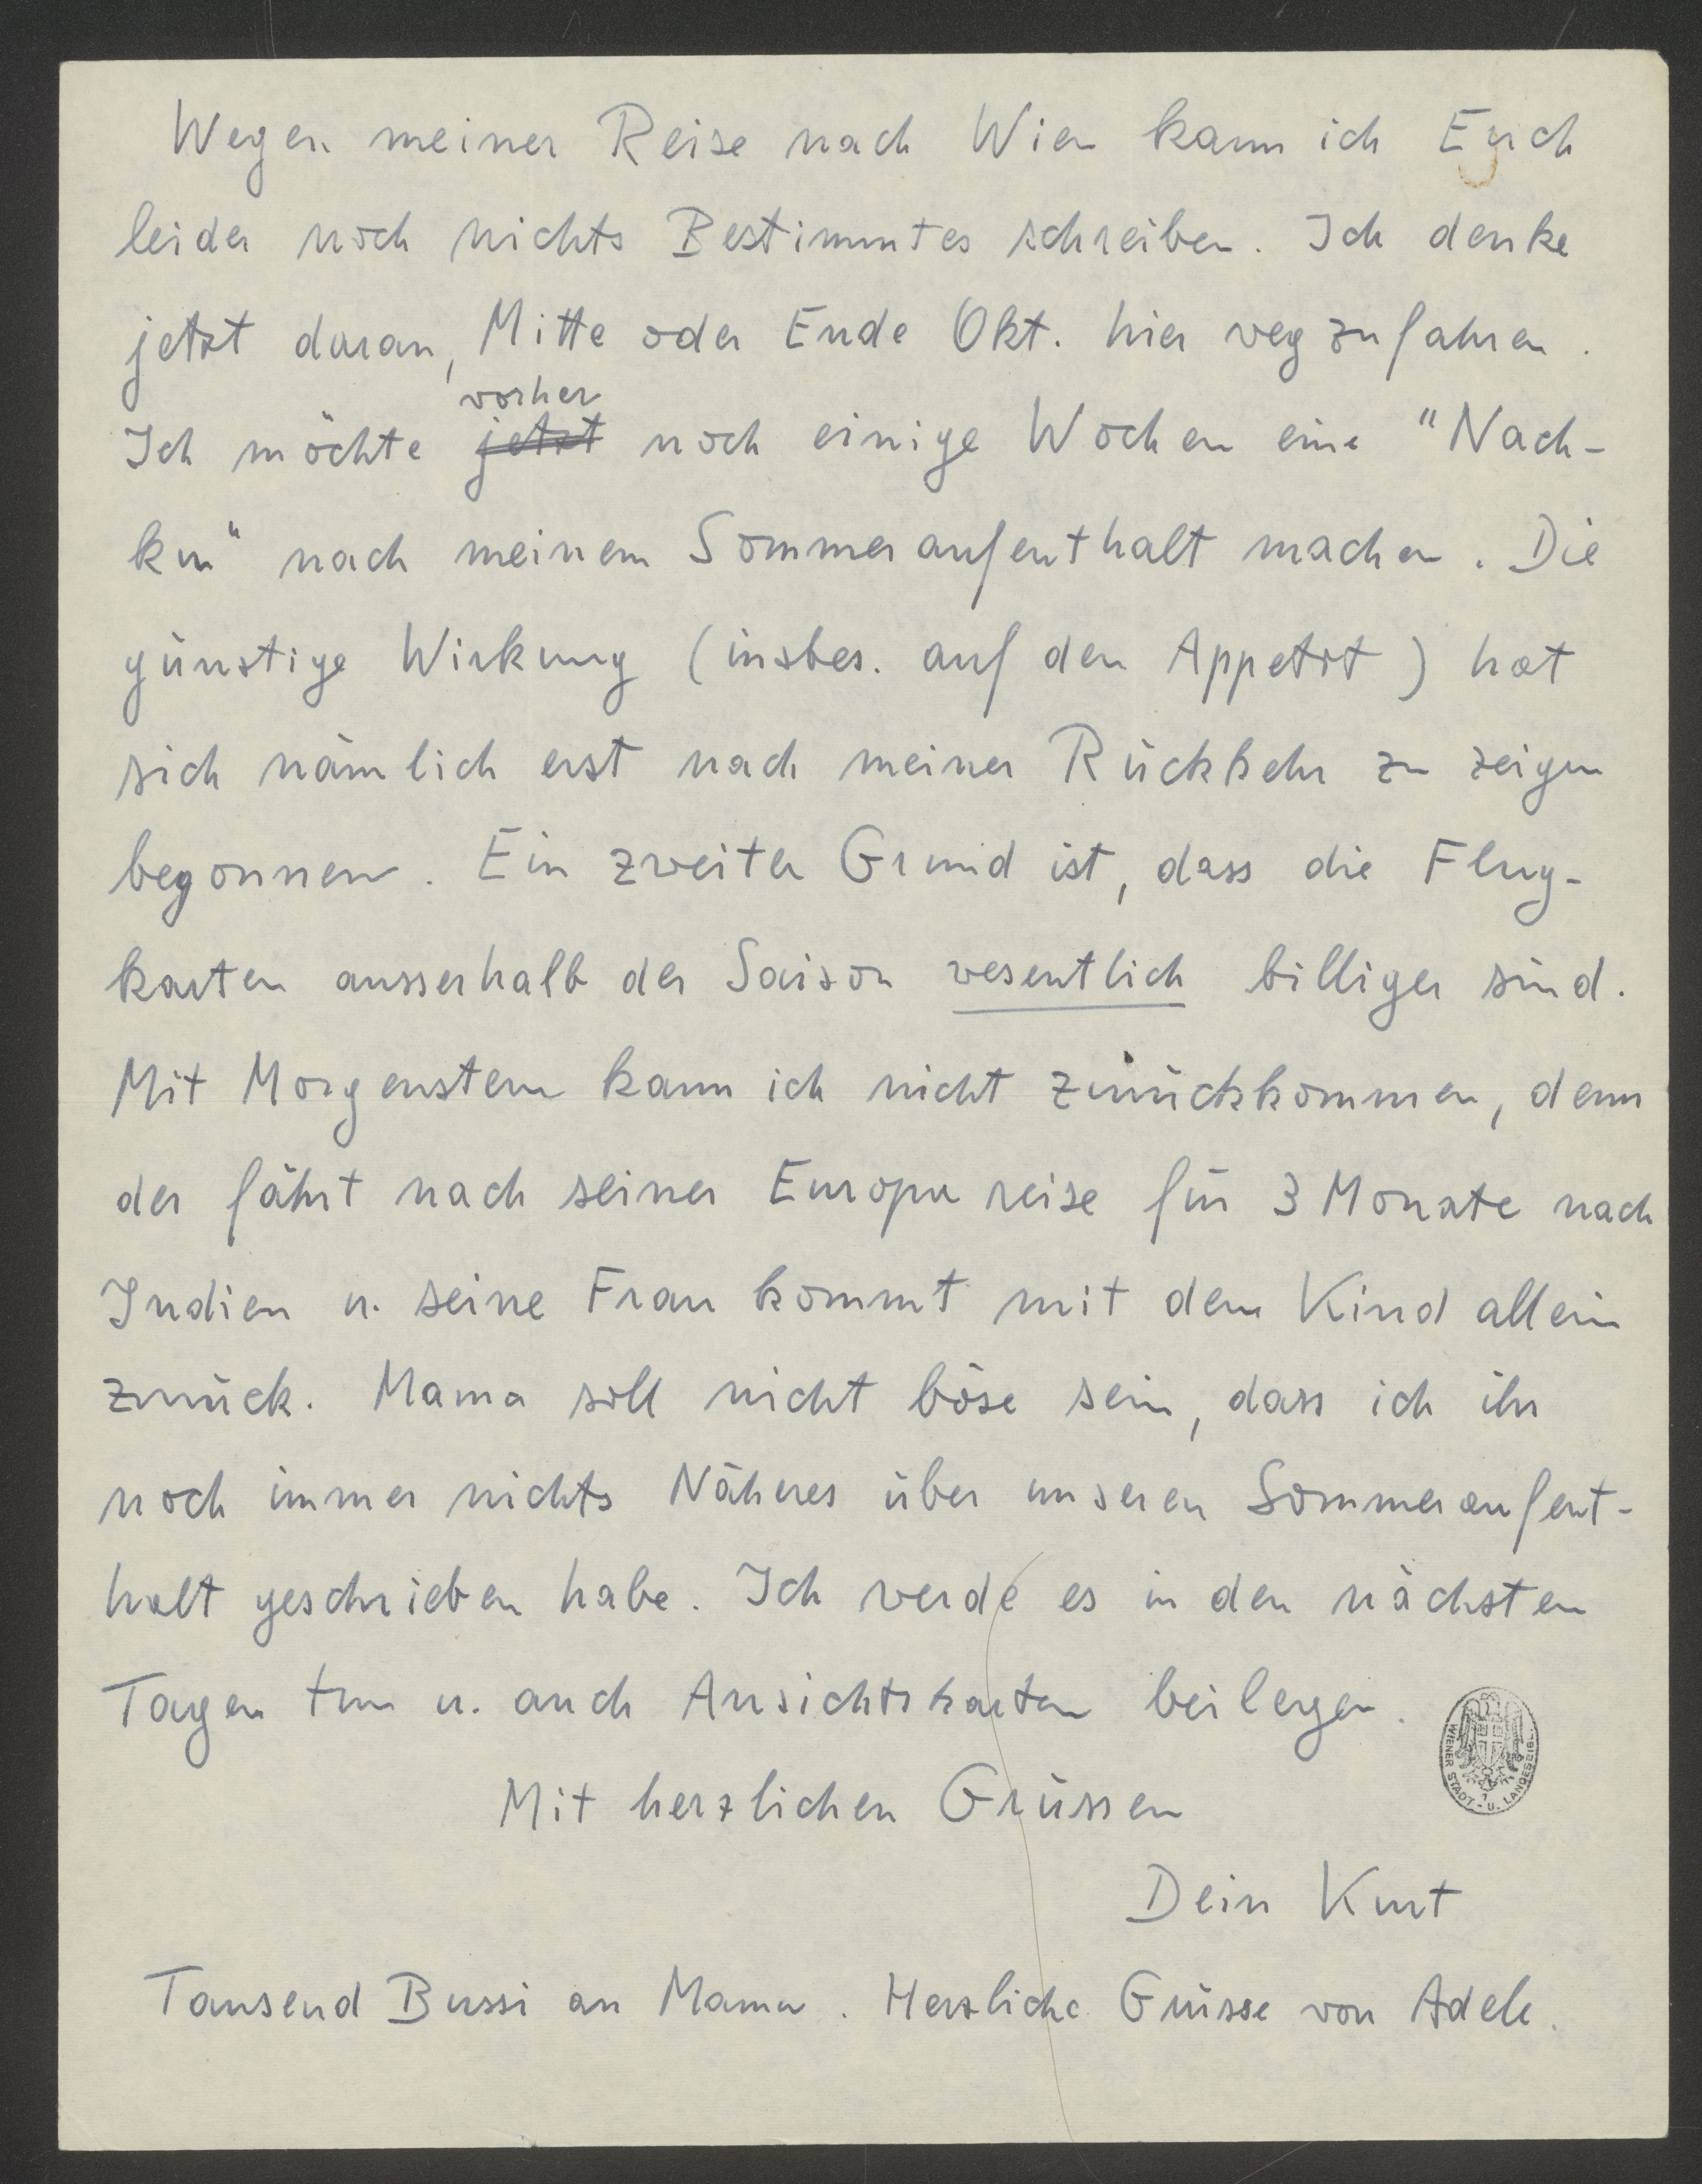 Wegen meiner Reise nach Wien kann ich Euch
leider noch nichts Bestimmtes schreiben. Ich denke
jetzt daran, Mitte oder Ende Okt. hier wegzufahren.
vorher
Ich möchte jetzt noch einige Wochen eine "Nach-
kur" nach meinem Sommeraufenthalt machen. Die
günstige Wirkung (insbes. auf den Appetit) hat
sich nämlich erst nach meiner Rückkehr zu zeigen
begonnen. Ein zweiter Grund ist, dass die Flug-
karten ausserhalb der Saison wesentlich billiger sind.
Mit Morgenstern kann ich nicht zurückkommen, denn
der fährt nach seiner Europareise für 3 Monate nach
Indien u. seine Frau kommt mit dem Kind allein
zurück. Mama soll nicht böse sein, dass ich ihr
noch immer nichts Näheres über unseren Sommeraufent-
halt geschrieben habe. Ich werde es in den nächsten
Tagen tun u. auch Ansichtskarten beilegen.
WIENER STADT- U. LANDESBIBL.
Mit herzlichen Grüssen
Dein Kurt
Tausend Bussi an Mama. Herzliche Grüsse von Adele.